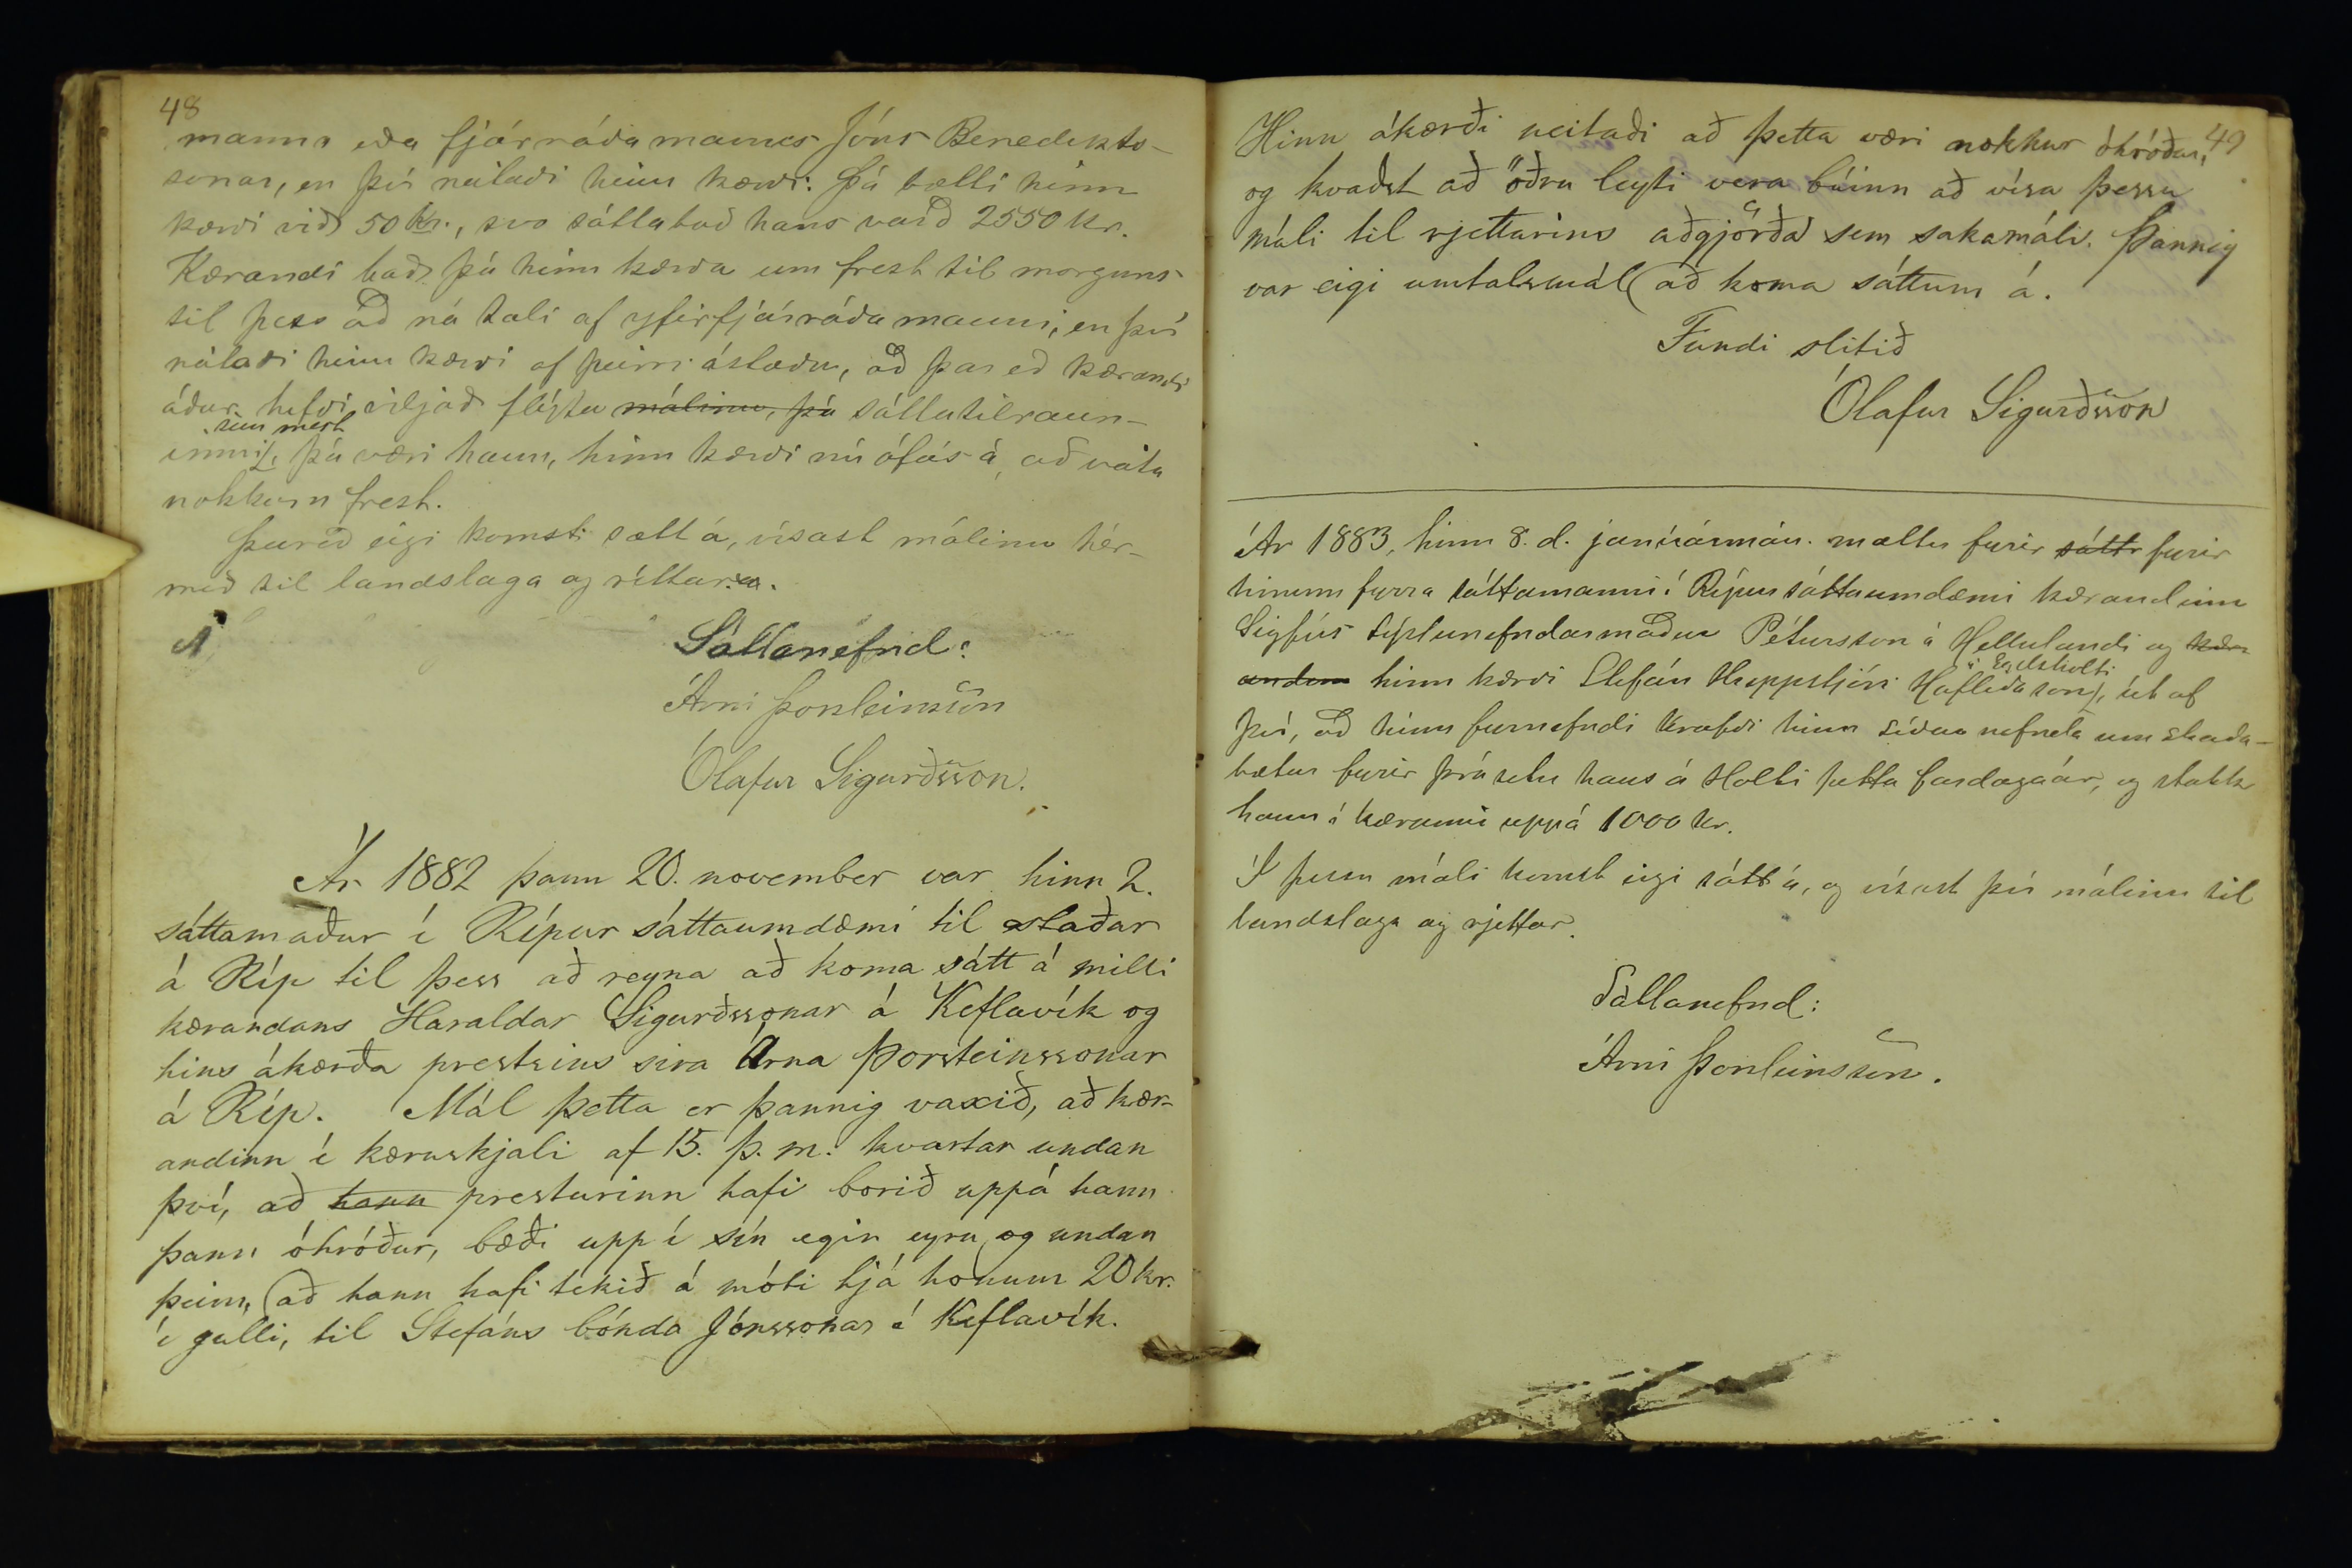 48
manns eða fjárráðamanns Jóns Benedikts-
sonar, en því neitaði hinn kærði. Þá bætti hinn
kærði við 50 kr., svo sáttaboð hans varð 2550 kr.
Kærandi bað þá hinn kærða um frest til morguns
til þess að ná tali af yfirfjárráðamanni, en því
neitaði hinn kærði af þeirri ástæðu, að þar eð kærandi
áður hefði viljað flýta málinu, þá sáttatilraun-
inni sem mest, þá væri hann, hinn kærði nú ófús á, að veita
nokkurn frest.
Þareð eigi komst sætt á, vísast málinu hér-
með til landslaga og réttar.
Sáttanefnd:
Árni Þorsteinsson
Ólafur Sigurðsson.
Ár 1882 þann 20. november var hinn 2.
sáttamaður í Rípur sáttaumdæmi til staðar
á Ríp til þess að reyna að koma sátt á milli
kærandans Haraldar Sigurðssonar á Keflavík og
hins ákærða prestsins sira Árna Þorsteinssonar
á Ríp. Mál þetta er þannig vaxið, að kær-
andinn í kæruskjali af 15. þ. m. kvartar undan
því, að hann presturinn hafi borið uppá hann
þann óhróður, bæði upp í sín egin eyru og undan
þeim, að hann hafi tekið á móti hjá honum 20 kr.
í gulli, til Stefáns bónda Jónssonar á Keflavík.
49
Hinn ákærði neitaði að þetta væri nokkur óhróður,
og kvaðst að öðru leyti vera búinn að vísa þessu
máli til rjettarins aðgjörða sem sakamáli. Þannig
var eigi umtalsmál að koma sáttum á.
Fundi slitið
Ólafur Sigurðsson
Ár 1883, hinn 8. d. janúármán. mættu furir sátta furir
hinum fyrra sáttamanni í Rípursáttaumdæmi kærandinn
Sigfús Sýslunefndarmaður Pétursson á Hellulandi og kær-
andinn hinn kærði Stefán Hreppstjóri Hafliðason á Egilsholti, út af
því, að hinn furnefndi krafði hinn síðar nefnda um skaða-
bætur furir þrásetu hans á Holti þetta fardagaár, og stakk
hann í kærunni uppá 1000 kr.
Í þessu máli komst eigi sátt á, og vísast því málinu til
landslaga og rjettar.
Sáttanefnd:
Árni Þorsteinsson.